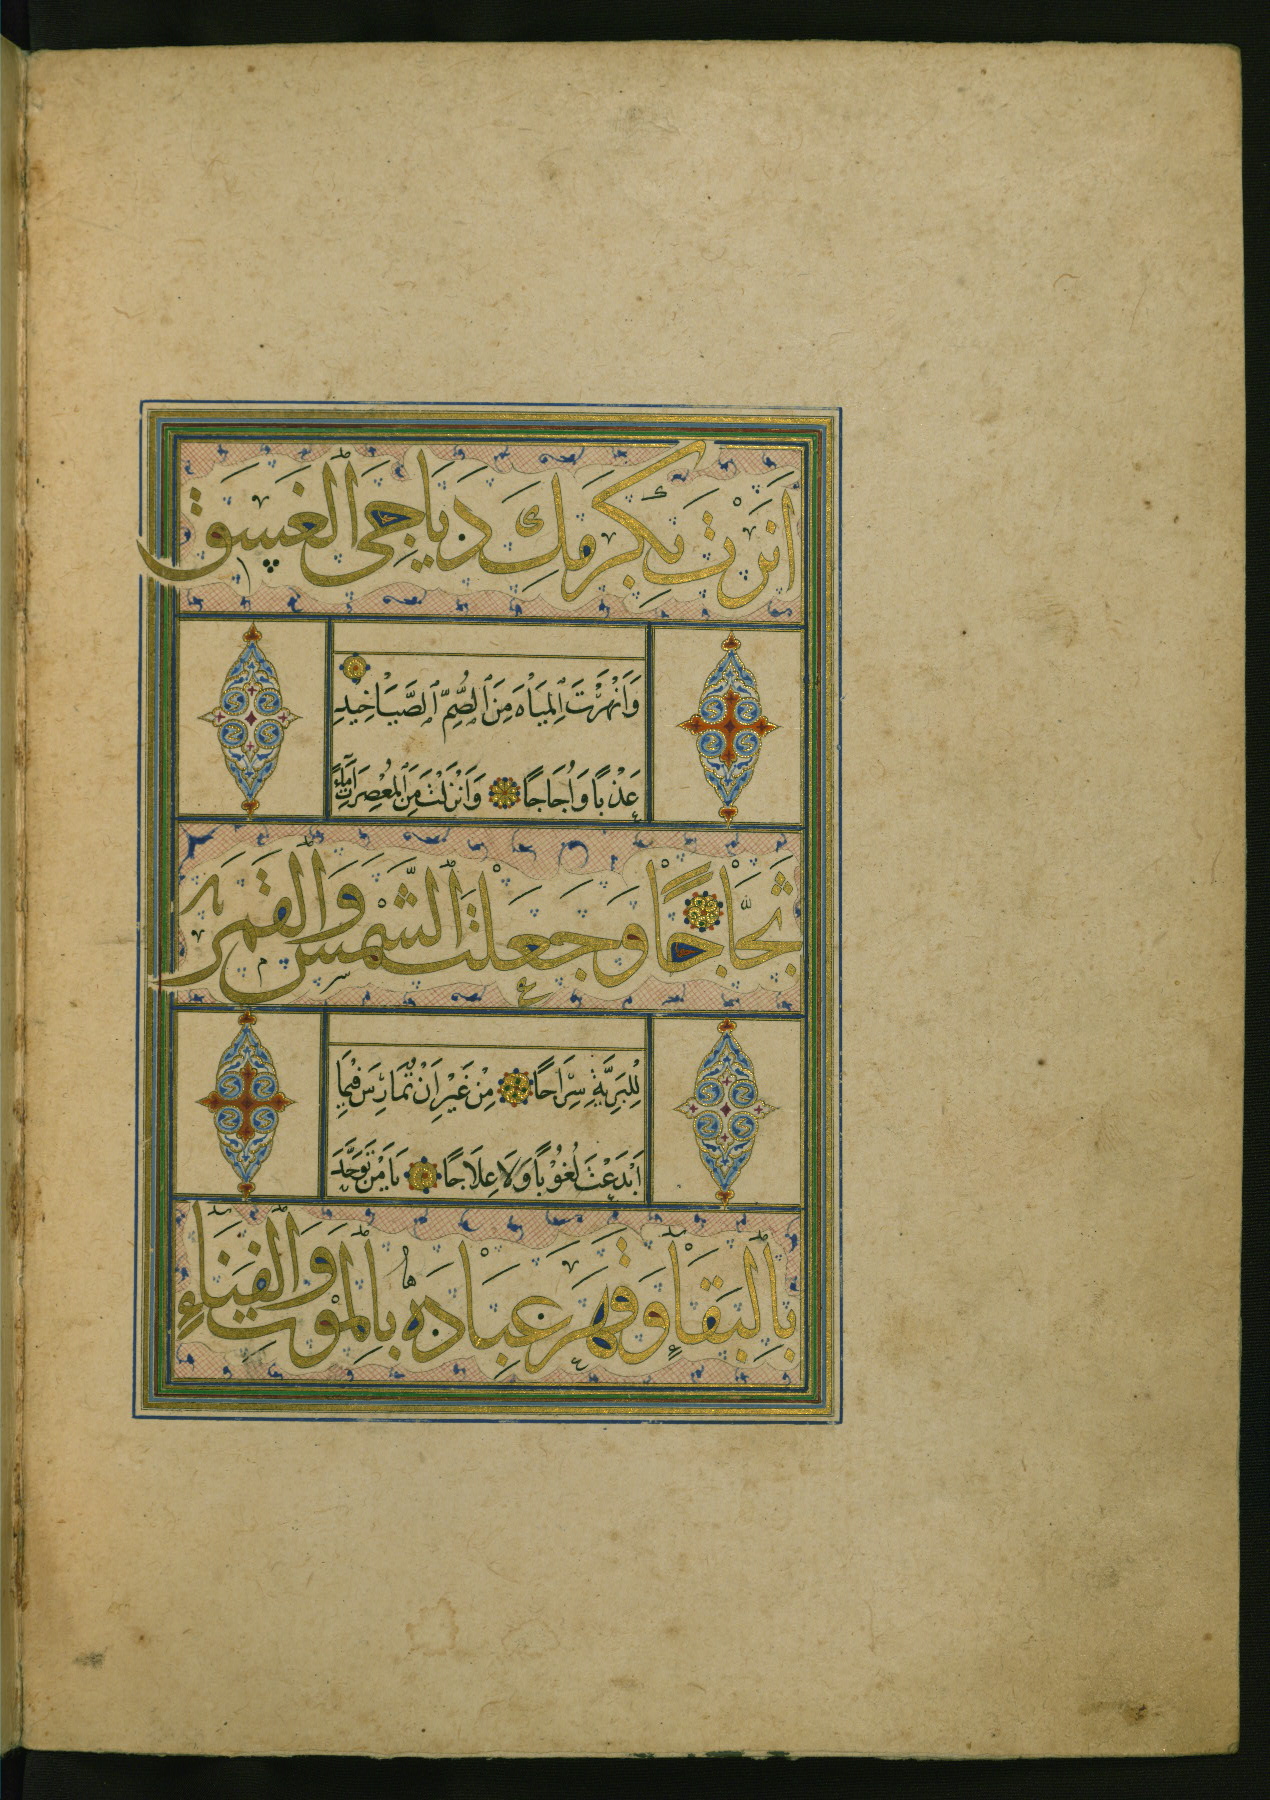 اَنَرْتَ بِكَرَمِكَ دَيَاجِيَ الْغَسَقِ
وَاَنْهَرْتَ الْمِيَاهَ مِنَ الصُّمِّ الصَّيَاخِيدِ
عَذْبًا وَاُجَاجًا وَاَنْزَلْتَ مِنَ الْمُعْصِرَاتِ مَاءً
ثَجَّاجًا وَجَعَلْتَ الشَّمْسَ وَالْقَمَرَ
لِلْبَرِيَّةِ سِرَاجًا مِنْ غَيْرِ اَنْ تُمَارِسَ فِيمَا
اَبْتَدَعْتَ لُغُوبًا وَلَا عِلَاجًا يَا مَنْ تَوَحَّدَ
بِالْبَقَاءِ وَقَهَرَ عِبَادَهُ بِالْمَوْتِ وَالْفَنَاءِ